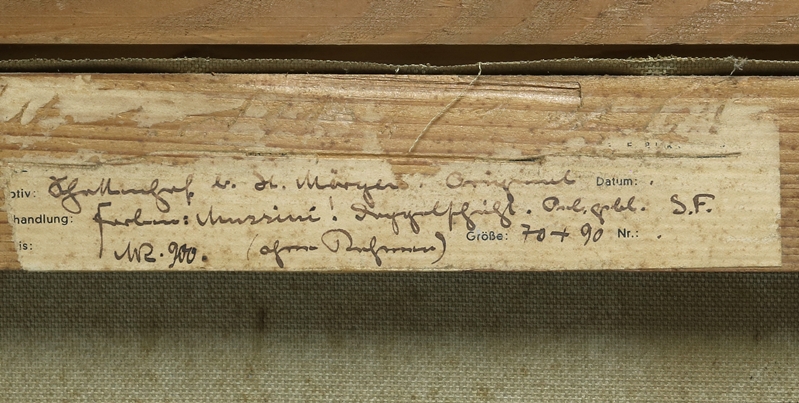 otiv: Schattenhof b. St. Märgen. Original Datum: .
handlung: Farben: Mussini! Doppelschicht. gebl. S.F.
is: Mk. 900. (ohne Rahmen) Größe: 70 + 90 Nr.: .